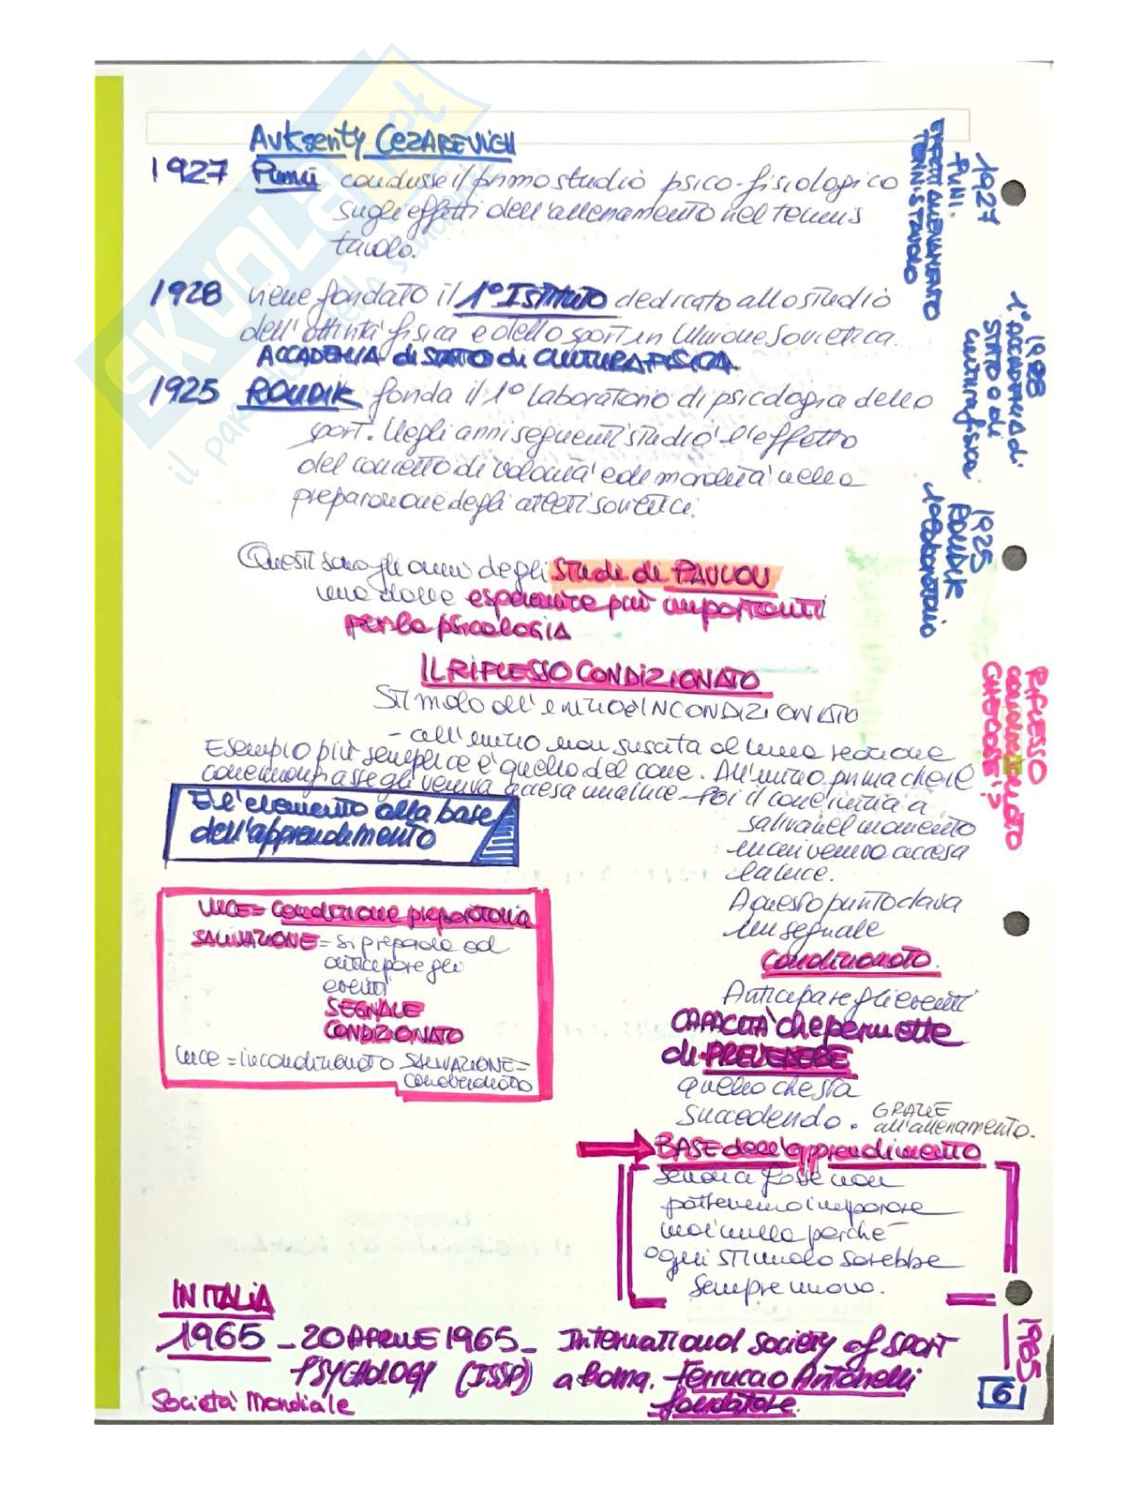 Avksenty Cezarevich
1927 Punii condusse il primo studio psico-fisiologico
sugli effetti dell'allenamento nel tennis
tavolo.
1928 viene fondato il 1° Istituto dedicato allo studio
dell'attività fisica e dello sport in Unione Sovietica.
ACCADEMIA di STATO di CULTURA FISICA
1925 ROUDIK fonda il 1° laboratorio di psicologia dello
sport. Negli anni seguenti studiò l'effetto
del concetto di volontà e di moralità nella
preparazione degli atleti sovietici.
Questi sono gli anni degli studi di PAVLOV
una delle esperienze più importanti
per la psicologia
IL RIFLESSO CONDIZIONATO
Stimolo all'inizio INCONDIZIONATO
- all'inizio non suscita alcuna reazione
Esempio più semplice è quello del cane. All'inizio prima che il
cane mangiasse gli veniva accesa una luce - Poi il cane inizia a
salivare nel momento
in cui veniva accesa
la luce.
A questo punto dava
un segnale
Condizionato.
Anticipare gli eventi
CAPACITÀ che permette
di PREVEDERE
quello che sta
succedendo. GRAZIE
all'allenamento.
E l'elemento alla base
dell'apprendimento
LUCE = Condizione preparatoria
SALIVAZIONE = si prepara ad
anticipare gli
eventi
SEGNALE
CONDIZIONATO
luce = incondizionato SALIVAZIONE =
condizionato
BASE dell'apprendimento
senza fosse non
potremmo imparare
mai nulla perché
ogni stimolo sarebbe
sempre nuovo.
IN ITALIA
1965 - 20 APRILE 1965 - International society of SPORT
PSYCHOLOGY (ISSP) a Roma. Ferruccio Antonelli
Società Mondiale fondatore.
1927
PUNI.
EFFETTI ALLENAMENTO
TENNIS TAVOLO
1928
1° ACCADEMIA di
STATO di
cultura fisica
1925
ROUDIK
1° laboratorio
RIFLESSO
condizionato
CHE COS'È?
1965
6
SKUOLA.net
il paradiso dello studente